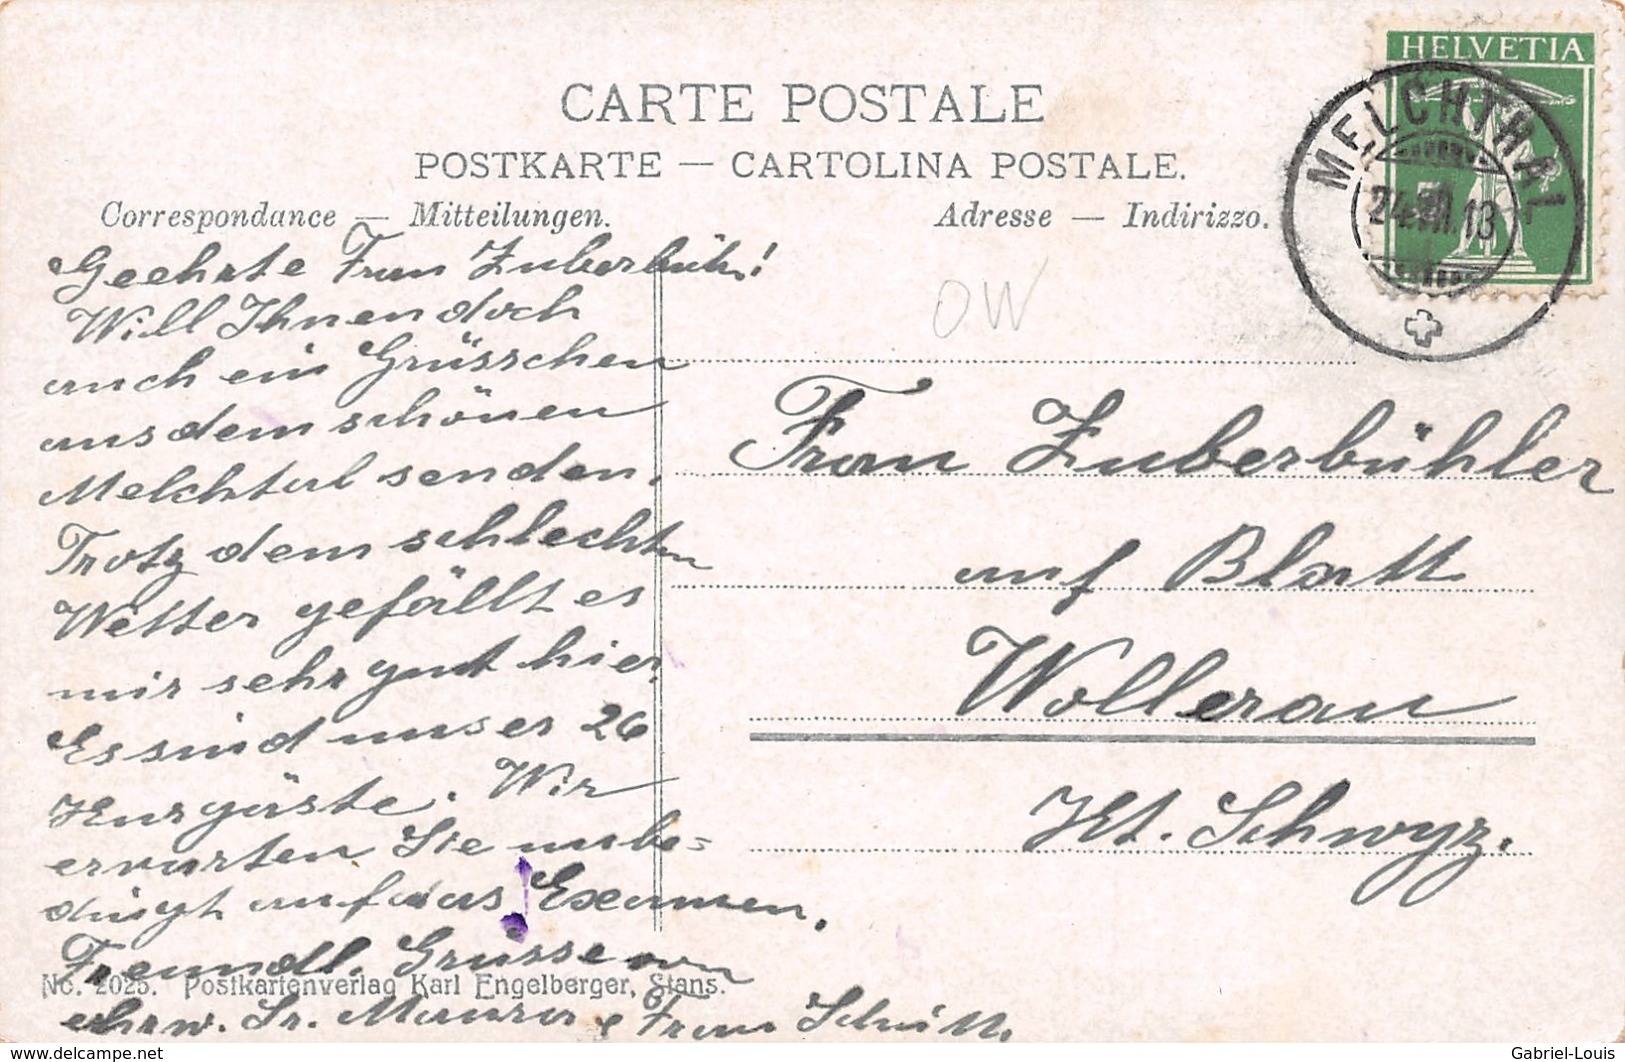 CARTE POSTALE
POSTKARTE — CARTOLINA POSTALE.
Correspondance — Mitteilungen.
Adresse — Indirizzo.
HELVETIA
MELCHTHAL
24.VII.13
OW
Geehrte Frau Zuberbüh.!
Will Ihnen doch
auch ein Grüsschen
aus dem schönen
Melchtal senden.
Trotz dem schlechten
Wetter gefällt es
mir sehr gut hier.
Es sind unser 26
Kurgäste. Wir
erwarten Sie unbe=
dingt auf das Examen.
Freundl. Grüsse von
ehrw. Sr. Maura & Frau
Frau Zuberbühler
auf Blatt
Wollerau
Kt. Schwyz.
No. 2025. Postkartenverlag Karl Engelberger, Stans.
www.delcampe.net
Gabriel-Louis